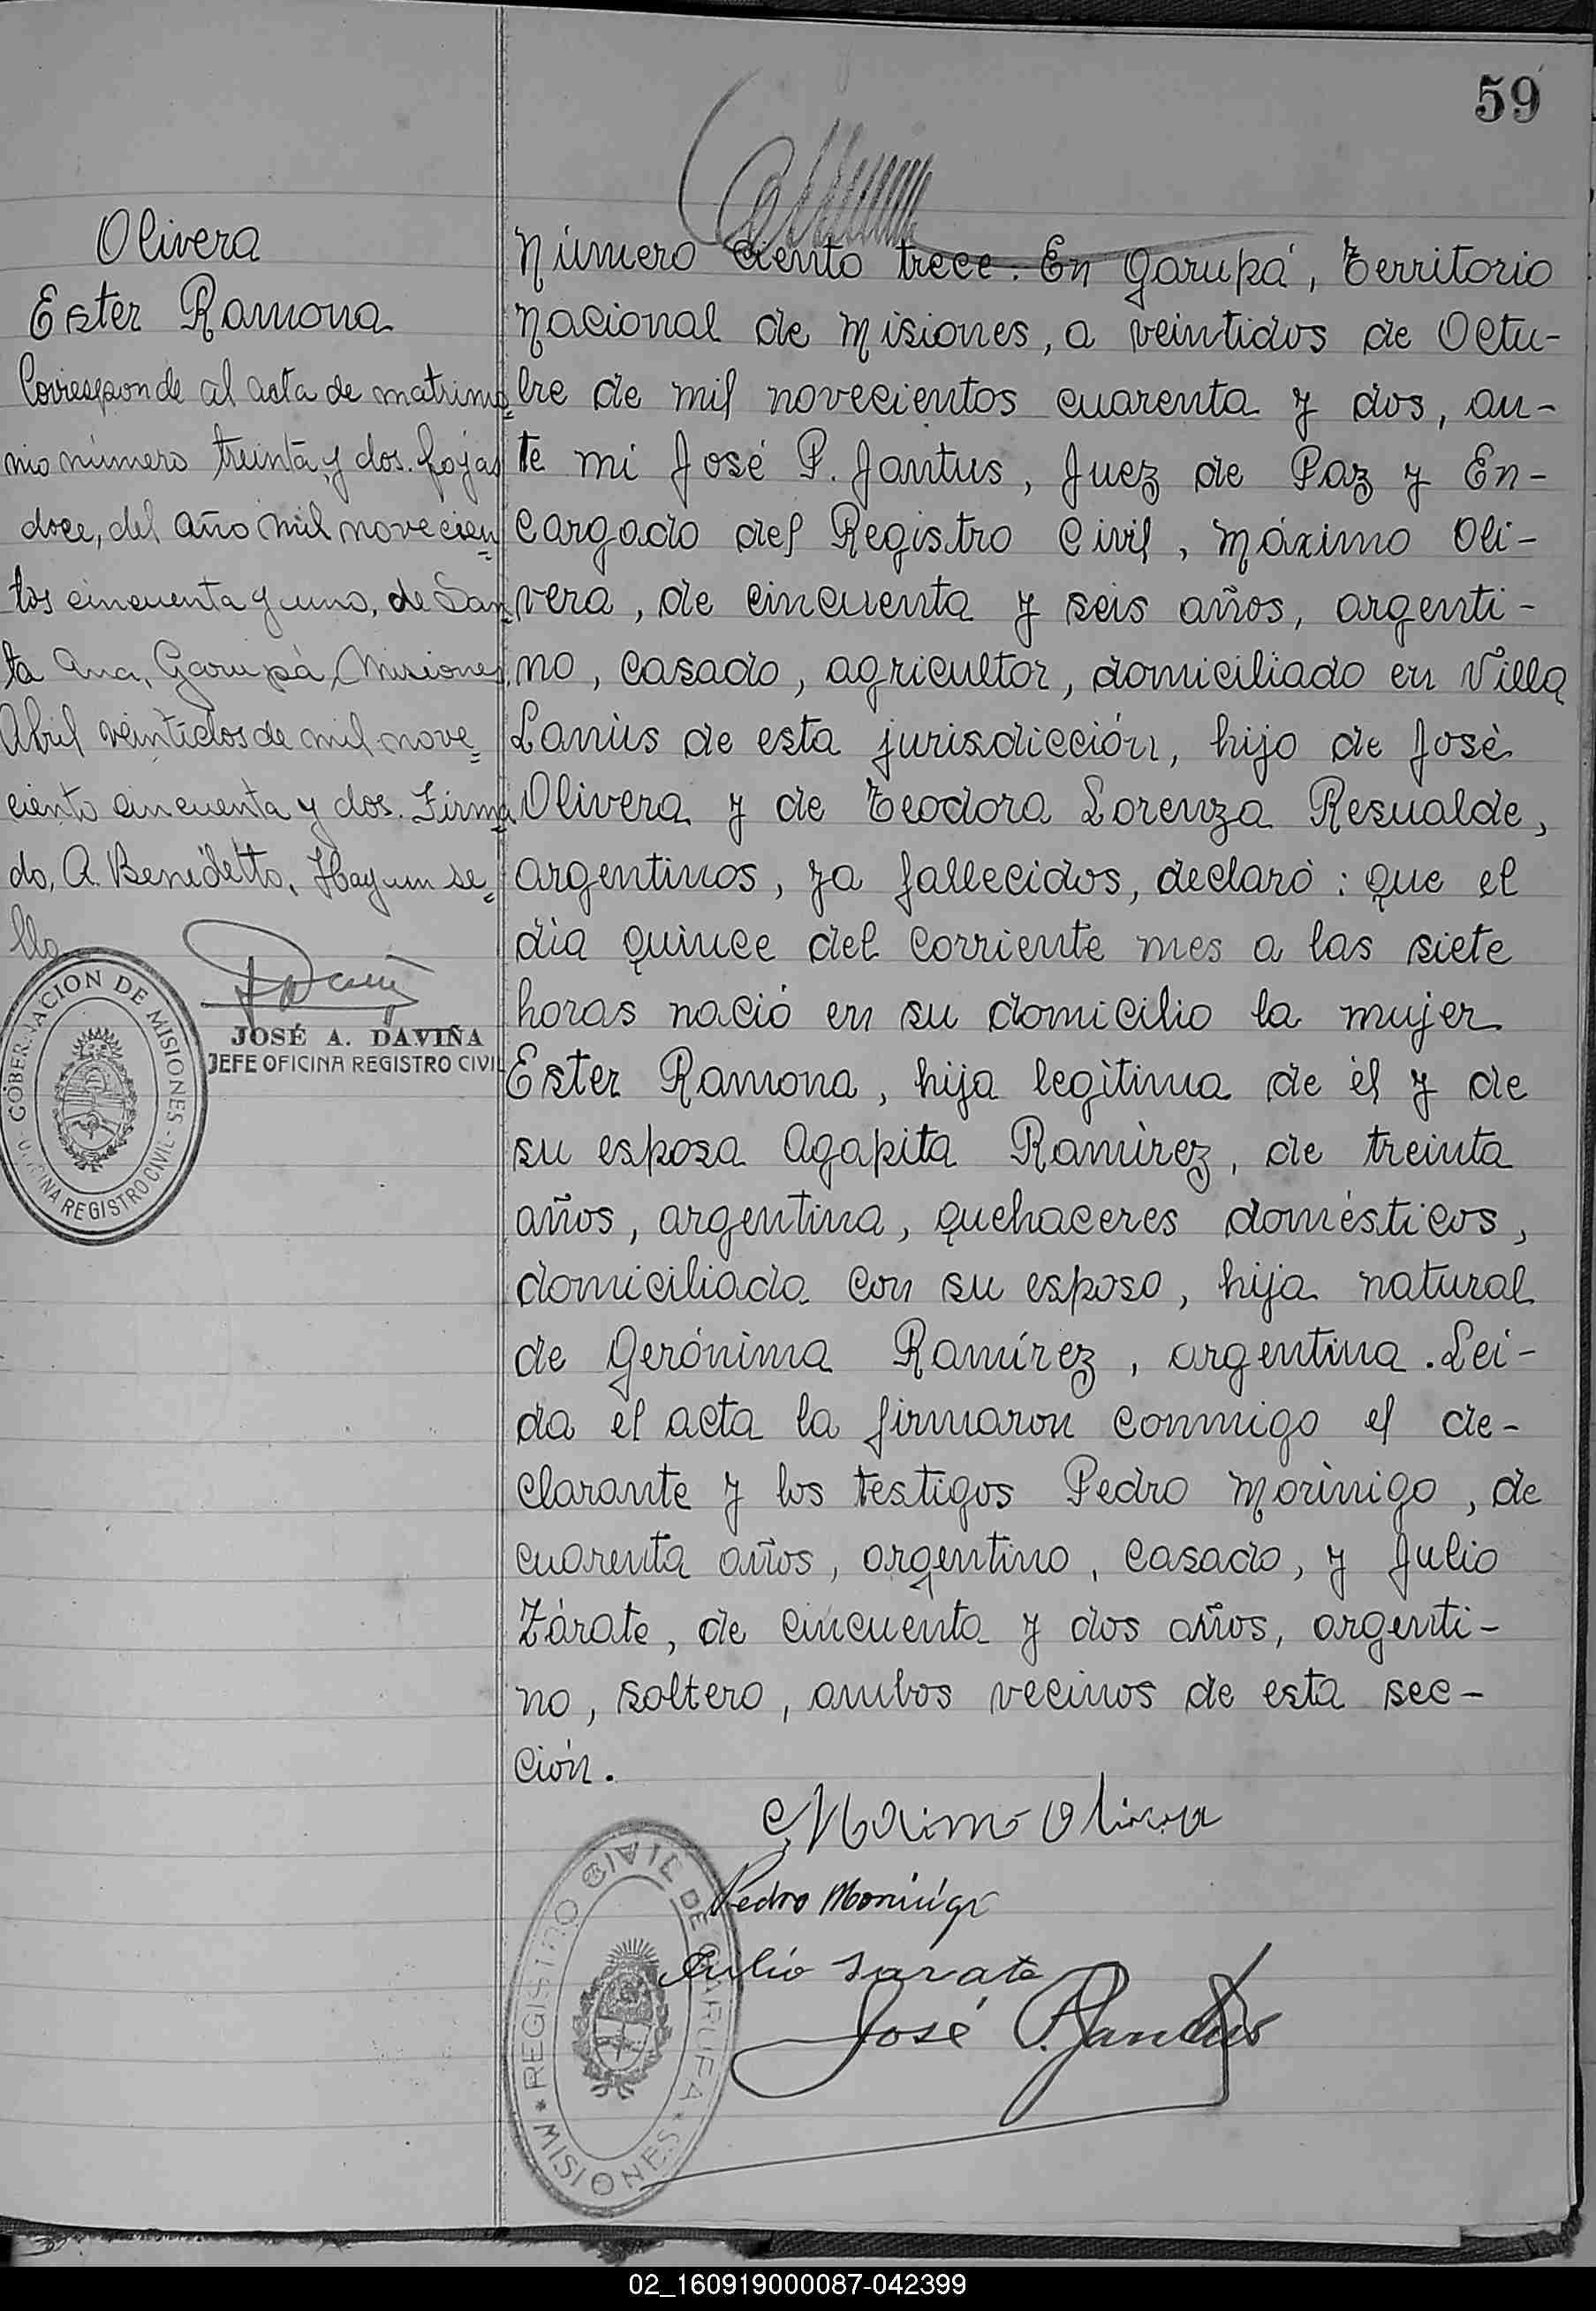 59
Olivera
Ester Ramona
Corresponde al acta de matrimo=
nio número treinta y dos. fojas
doce, del año mil novecien=
tos cincuenta y uno, de San=
ta Ana, Garupá, Misiones,
Abril veintidos de mil nove=
ciento cincuenta y dos. Firma=
do, A. Benedetto, Hay un se=
llo
JOSÉ A. DAVIÑA
JEFE OFICINA REGISTRO CIVIL
GOBERNACION DE MISIONES
OFICINA REGISTRO CIVIL
Número ciento trece. En Garupá, Territorio
Nacional de Misiones, a veintidos de Octu-
bre de mil novecientos cuarenta y dos, an-
te mi José P. Jantus, Juez de Paz y En-
cargado del Registro Civil, Máximo Oli-
vera, de cincuenta y seis años, argenti-
no, casado, agricultor, domiciliado en Villa
Lanús de esta jurisdicción, hijo de José
Olivera y de Teodora Lorenza Resualde,
argentinos, ya fallecidos, declaró: que el
día quince del corriente mes a las siete
horas nació en su domicilio la mujer
Ester Ramona, hija legítima de él y de
su esposa Agapita Ramírez, de treinta
años, argentina, quehaceres domésticos,
domiciliada con su esposo, hija natural
de Gerónima Ramírez, argentina. Leí-
da el acta la firmaron conmigo el de-
clarante y los testigos Pedro Morinigo, de
cuarenta años, argentino, casado, y Julio
Zárate, de cincuenta y dos años, argenti-
no, soltero, ambos vecinos de esta sec-
ción.
Maximo Olivera
Pedro Morinigo
Julio Sarate
José P. Jantus
REGISTRO CIVIL DE GARUPA
* MISIONES *
02_160919000087-042399